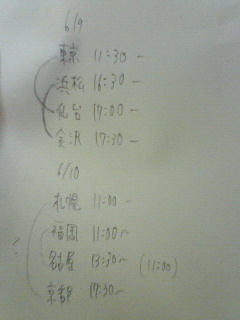 6/9
東京 11:30 ー
浜松 16:30 ー
仙台 17:00 ー
金沢 17:30 ー
6/10
札幌 11:00 ー
福岡 11:00〜
名古屋 13:30〜 (11:00)
京都 17:30〜